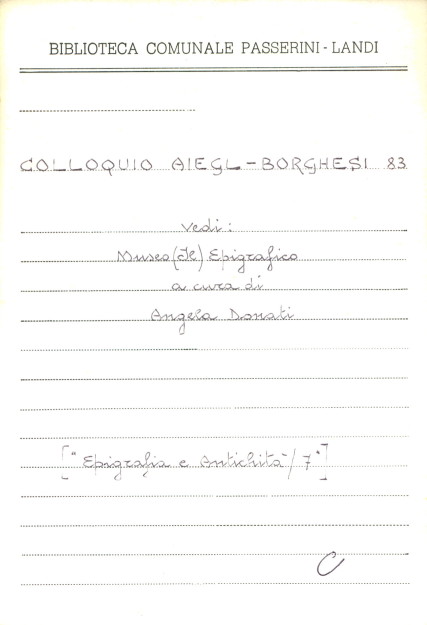 BIBLIOTECA COMUNALE PASSERINI - LANDI
COLLOQUIO AIEGL - BORGHESI 83
Vedi:
Museo (Il) Epigrafico
a cura di
Angela Donati
["Epigrafia e Antichità/7"]
C